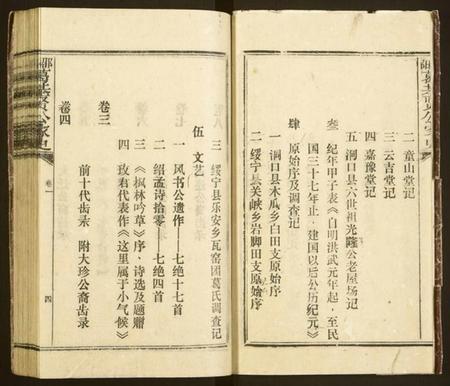 二 童山堂记
三 云吉堂记
四 嘉豫堂记
五 洞口县六世祖光隆公老屋场记
叁 纪年甲子表《自明洪武元年起,至民
国三十七年止,建国以后公历纪元》
肆 原始序及调查记
一 洞口县木瓜乡白田支原始序
二 绥宁县关峡乡岩脚田支原始序
三 绥宁县乐安乡瓦窑团葛氏调查记
伍 文艺
一 风书公遗作——七绝十七首
二 绍孟诗拾零——七绝四首
三 《枫林吟草》序、诗选及题赠
四 玫君代表作《这里属于小气候》
卷三
前十代齿录 附大珍公裔齿录
卷四
卷一
四